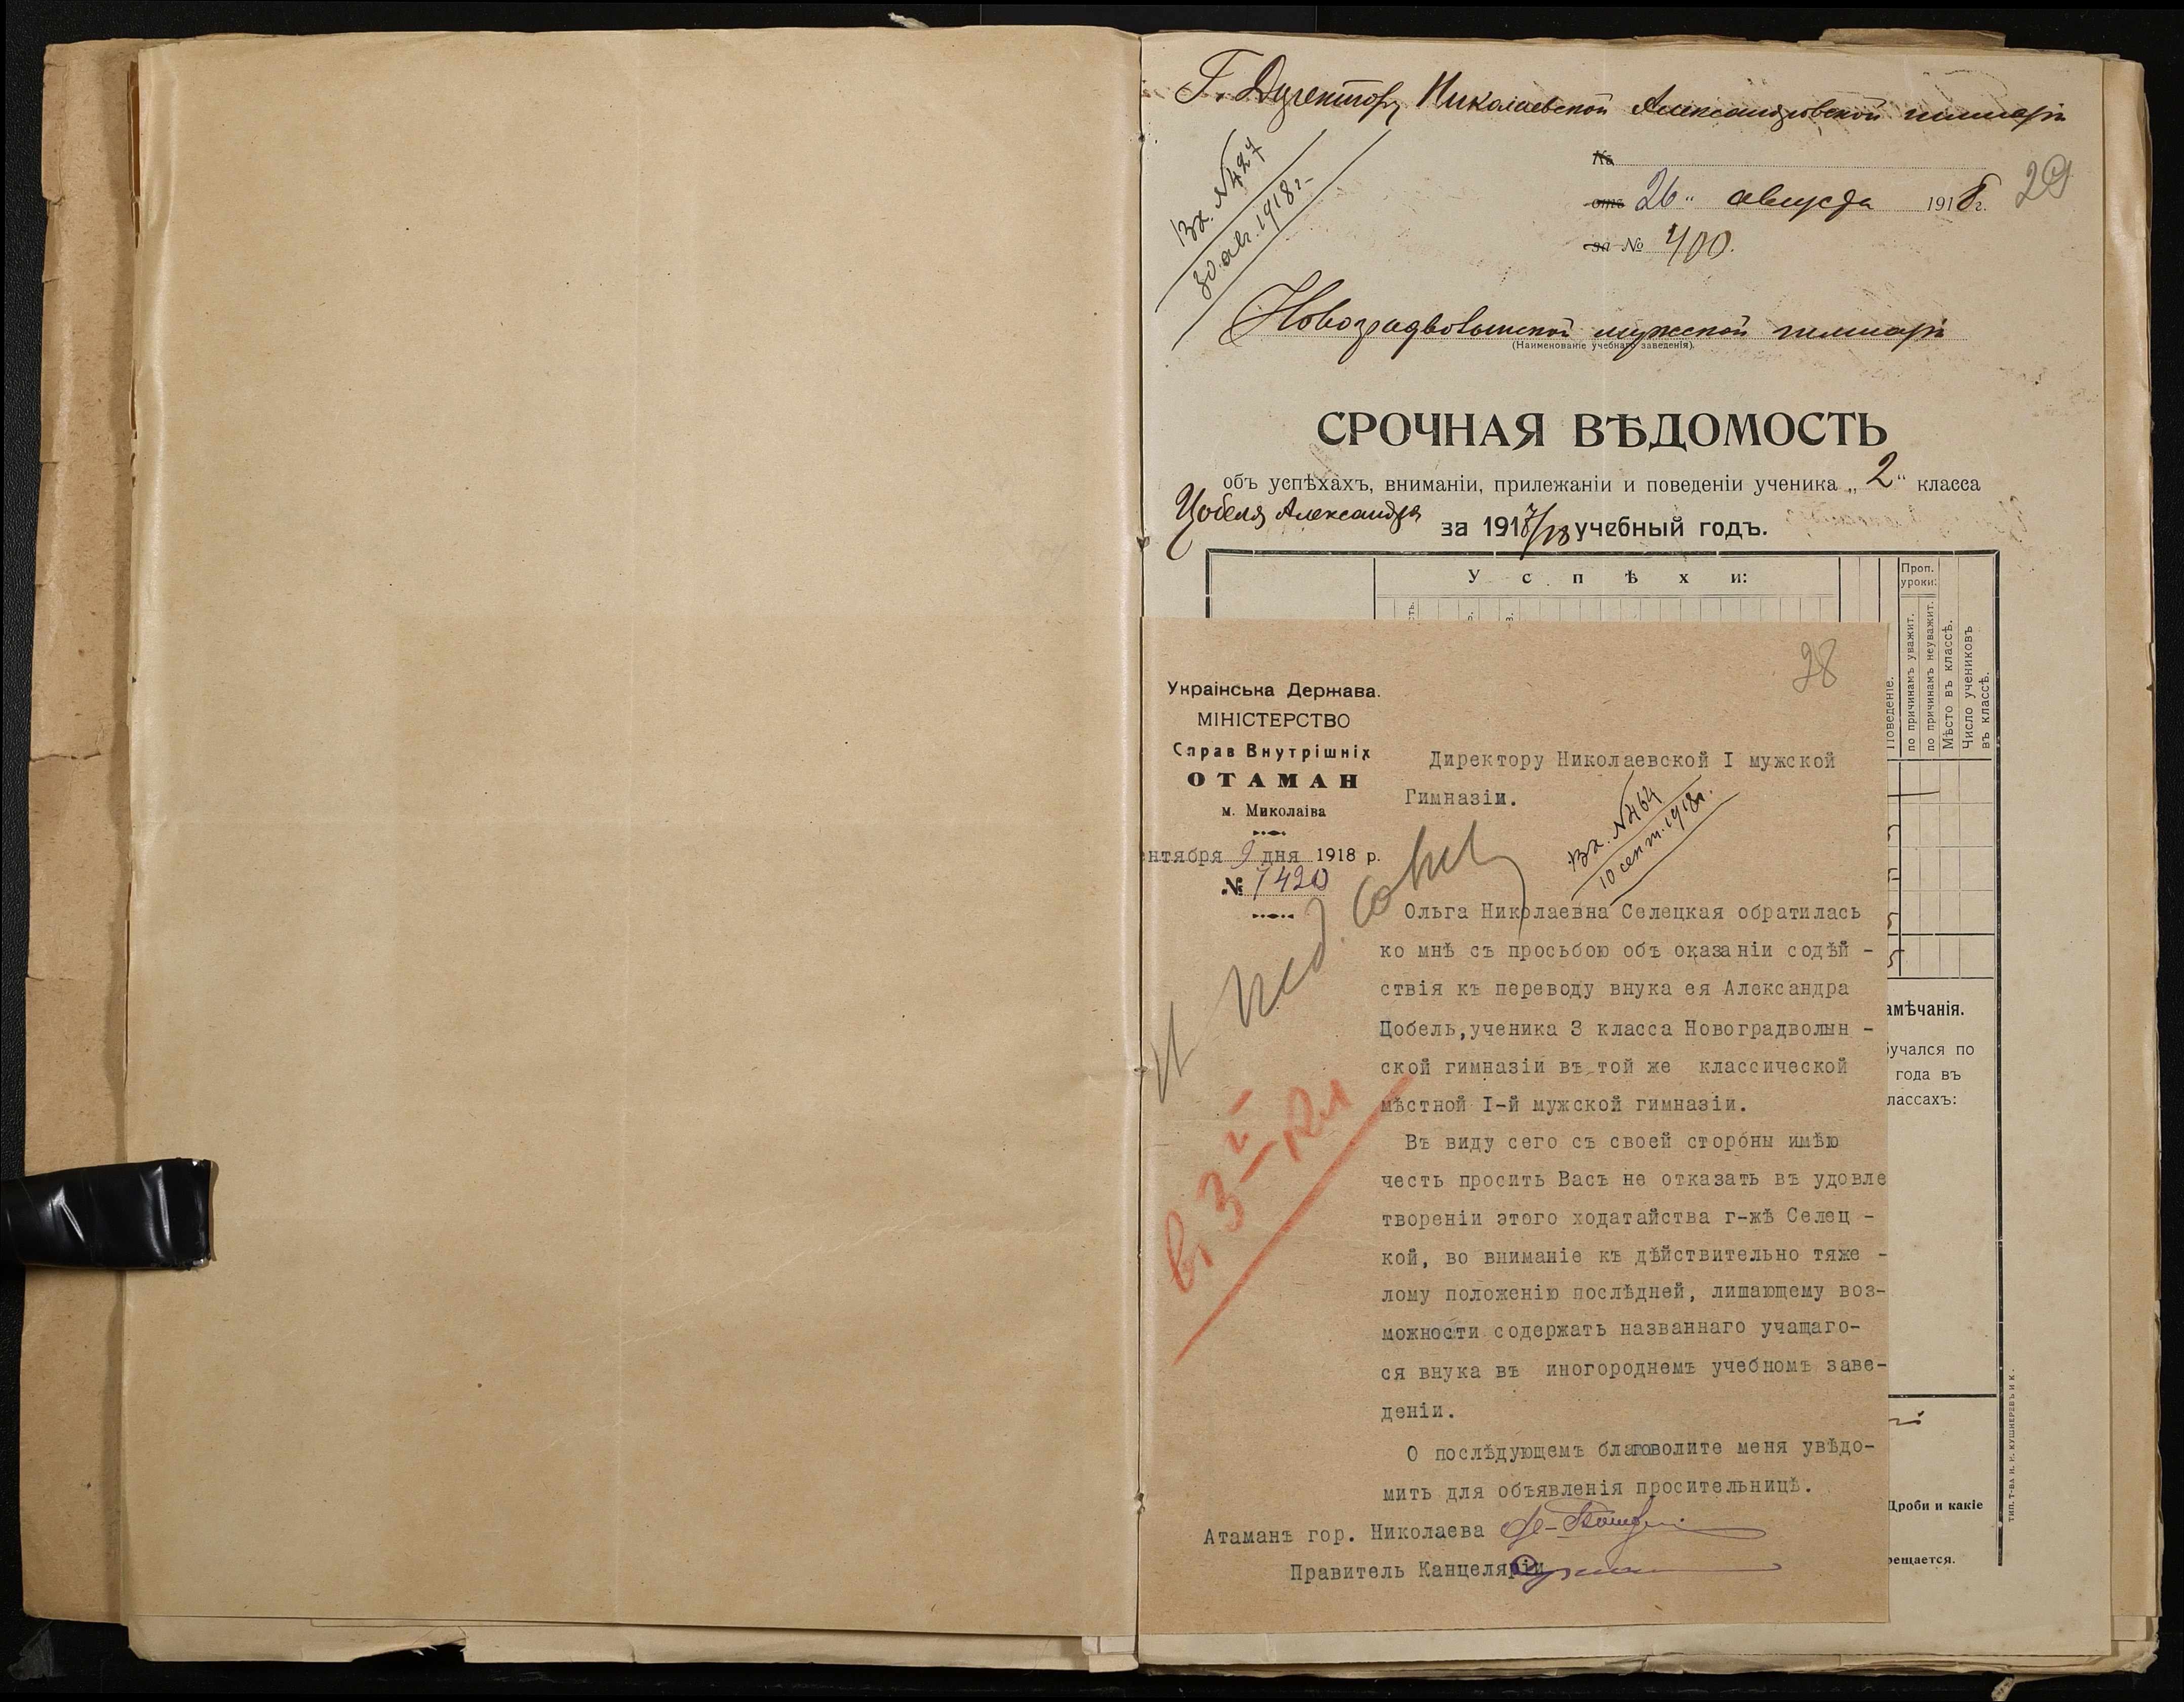 Г. Директору Николаевской Александровской гимназіи
Вх. №427
30 авг. 1918 г.
На
отъ 26" августа 1918 г.
29
за № 400.
Новоградволынской мужской гимназіи
(Наименованіе учебнаго заведенія).
СРОЧНАЯ ВѢДОМОСТЬ
объ успѣхахъ, вниманіи, прилежаніи и поведеніи ученика „2“ класса
Цобеля Александра
за 1917/18 учебный годъ.
Успѣхи:
Проп. уроки:
по причинамъ уважит.
по причинамъ неуважит.
Мѣсто въ классѣ.
Число учениковъ
въ классѣ.
Поведеніе.
28
Українська Держава.
МІНІСТЕРСТВО
Справ Внутрішніх
ОТАМАН
м. Миколаіва
нтября 9 дня 1918 р.
№ 7420
Директору Николаевской I мужской
Гимназіи.
Вх. №464
10 сент. 1918 г.
Ольга Николаевна Селецкая обратилась
ко мнѣ съ просьбою объ оказаніи содѣй -
ствія къ переводу внука ея Александра
Цобель,ученика 3 класса Новоградволын -
ской гимназіи въ той же классической
мѣстной I-й мужской гимназіи.
Въ виду сего съ своей стороны имѣю
честь просить Васъ не отказать въ удовле
твореніи этого ходатайства г-жѣ Селец -
кой, во вниманіе къ дѣйствительно тяже -
лому положенію послѣдней, лишающему воз-
можности содержать названнаго учащаго-
ся внука въ иногороднемъ учебномъ заве-
деніи.
О послѣдующемъ благоволите меня увѣдо-
мить для объявленія просительницѣ.
Атаманъ гор. Николаева
Правитель Канцеляріи
Пед. совет
в 3й кл
амѣчанія.
бучался по
года въ
лассахъ:
Дроби и какіе
рещается.
ТИП. Т-ВА И. Н. КУШНЕРЕВЪ И К.